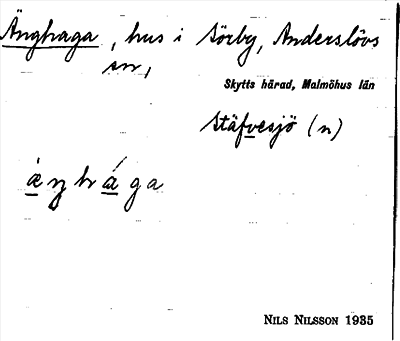 Änghaga, hus i Sörby, Anderslövs
sn,
Skytts härad, Malmöhus län
Stäfvesjö (n)
ǽŋhága
Nils Nilsson 1935